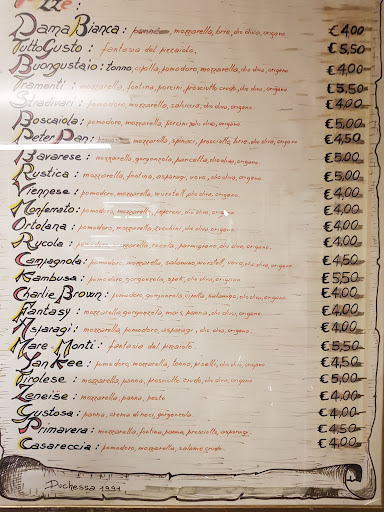 Pizze:
Dama Bianca: panna, mozzarella, brie, olio d'oliva, origano €4,00
TuttoGusto: fantasia del pizzaiolo. €5,50
Buongustaio: tonno, cipolla, pomodoro, mozzarella, olio d'oliva, origano €4,00
Tramenti: mozzarella, fontina, porcini, prosciutto crudo, olio d'oliva, origano €5,50
Stradivari: pomodoro, mozzarella, salsiccia, olio d'oliva, origano €4,00
Boscaiola: pomodoro, mozzarella, porcini, olio d'oliva, origano €5,00
Peter Pan: mozzarella, spinaci, prosciutto, brie, olio d'oliva, origano €4,50
Bavarese: mozzarella, gorgonzola, olio d'oliva, origano €5,00
Rustica: mozzarella, fontina, asparagi, uova, olio d'oliva, origano €5,00
Viennese: pomodoro, mozzarella, wurstell, olio d'oliva, origano €4,00
Monferrato: pomodoro, mozzarella, peperoni, olio d'oliva, origano €4,00
Ortolana: pomodoro, mozzarella, zucchini, olio d'oliva, origano €4,00
Rucola: pomodoro, mozzarella, rucola, parmigiano, olio d'oliva, origano €4,00
Campagnola: pomodoro, mozzarella, salamino, wurstell, uova, olio d'oliva, origano €4,50
Kambusa: pomodoro, gorgonzola, spek, olio d'oliva, origano €5,50
Charlie Brown: pomodoro, gorgonzola, cipolla, salamino, olio d'oliva, origano €4,00
Fantasy: mozzarella, gorgonzola, mais, panna, olio d'oliva, origano €4,00
Asparagi: mozzarella, pomodoro, asparagi, olio d'oliva, origano €4,00
Mare-Monti: fantasia del pizzaiolo €5,50
Yan Kee: pomodoro, mozzarella, tonno, piselli, olio d'oliva, origano €4,50
Tirolese: mozzarella, panna, prosciutto crudo, olio d'oliva, origano €5,00
Zeneise: mozzarella, panna, pesto €4,00
Gustosa: panna, crema di noci, gorgonzola €4,00
Primavera: mozzarella, fontina, panna, prosciutto, asparagi €4,50
Casareccia: pomodoro, mozzarella, salame crudo. €4,00
Duchessa 1991